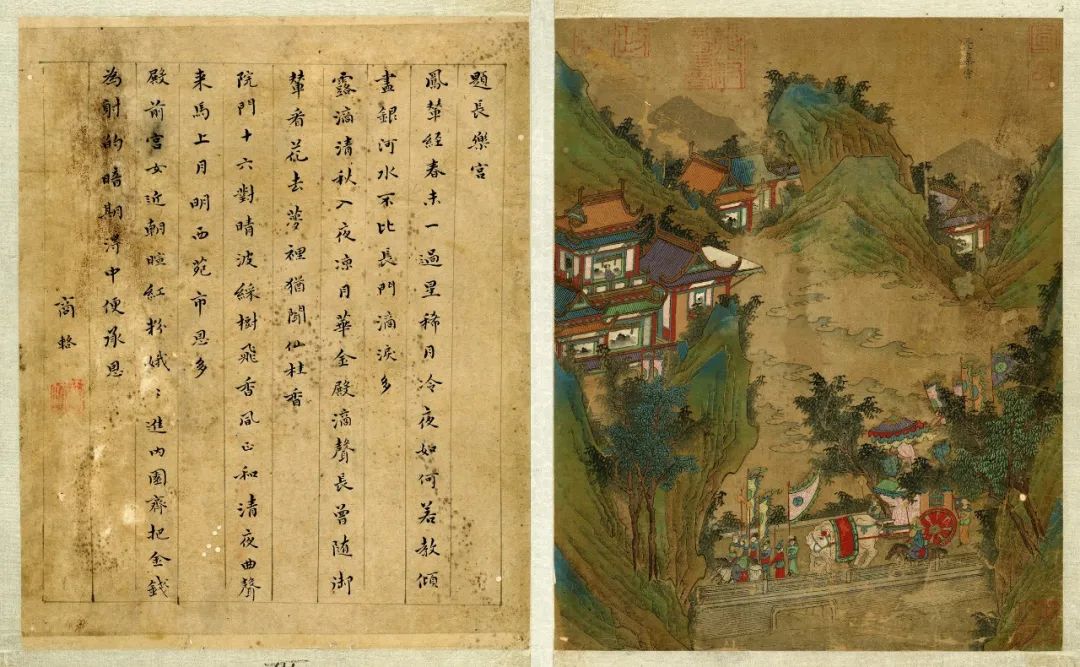 題長樂宮
鳳輦經春未一過星稀月冷夜如何若教傾
盡銀河水不比長門滴淚多
露滴清秋入夜凉月華金殿漏聲長曾隨御
輦看花去夢裡猶聞仙香
院門十六對晴波綵樹飛香風正和清夜曲聲
来馬上月明西苑市恩多
殿前宮女近朝暄紅粉娥〻進內園齊把金錢
為射的暗期得中便承恩
商輅